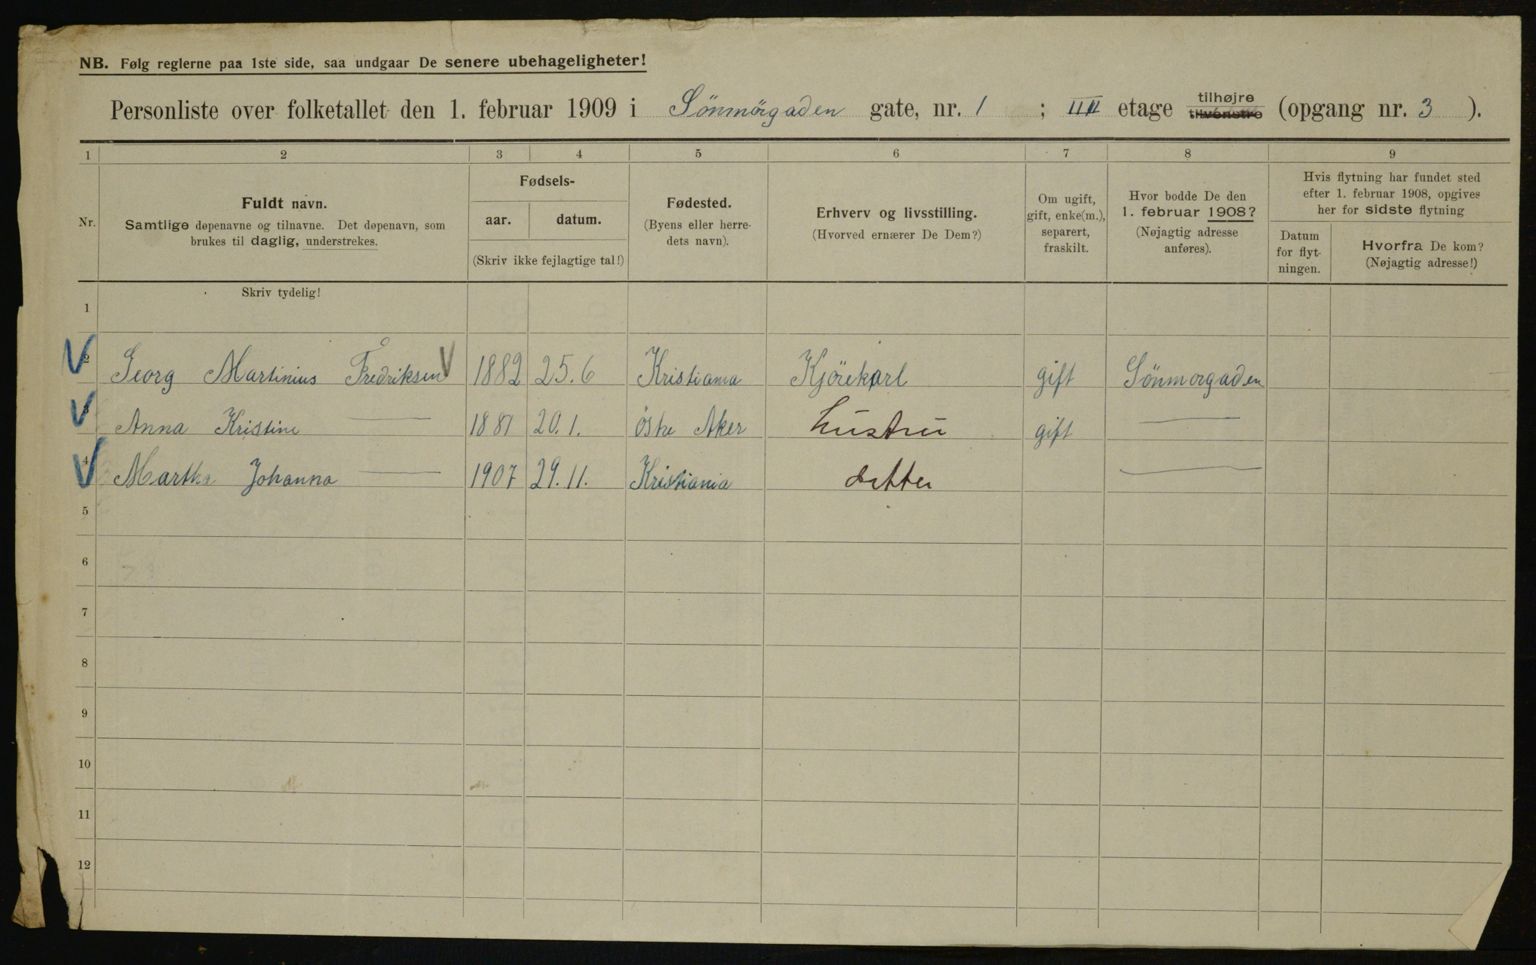 NB. Følg reglerne paa 1ste side, saa undgaar De senere ubehageligheter!
Personliste over folketallet den 1. februar 1909 i Sönmörgaden gate, nr. 1 ; etage tilhøjre tilvenstre (opgang nr. 3 ).
1 2 3 4 5 6 7 8 9
Nr.
Fuldt navn.
Samtlige døpenavne og tilnavne. Det døpenavn, som
brukes til daglig, understrekes.
Fødsels-
aar. datum.
(Skriv ikke fejlagtige tal!)
Fødested.
(Byens eller herre-
dets navn).
Erhverv og livsstilling.
(Hvorved ernærer De Dem?)
Om ugift,
gift, enke(m.),
separert,
fraskilt.
Hvor bodde De den
1. februar 1908?
(Nøjagtig adresse
anføres).
Hvis flytning har fundet sted
efter 1. februar 1908, opgives
her for sidste flytning
Datum
for flyt-
ningen.
Hvorfra De kom?
(Nøjagtig adresse!)
Skriv tydelig!
1
2 Georg Martinius Fredriksen 1882 25.6 Kristiania Kjörekarl gift Sönmorgaden
3 Anna Kristine — 1881 20.1. östre Aker hustru gift —
4 Martha Johanna — 1907 29.11. Kristiania datter —
5
6
7
8
9
10
11
12